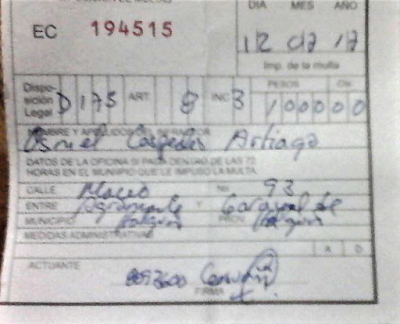 DIA MES AÑO
EC 194515
12 07 17
Imp. de la multa
PESOS Ctv.
Dispo-
sición
Legal D 175 ART. 8 INC 3 100000
NOMBRE Y APELLIDOS DEL INFRACTOR
Osniel Céspedes Artiaga
DATOS DE LA OFICINA SI PAGA DENTRO DE LAS 72
HORAS EN EL MUNICIPIO QUE LE IMPUSO LA MULTA.
CALLE Maceo No. 93
ENTRE Agramonte Y
MUNICIPIO Holguín PROV. Holguín
MEDIDAS ADMINISTRATIVAS
ACTUANTE
FIRMA